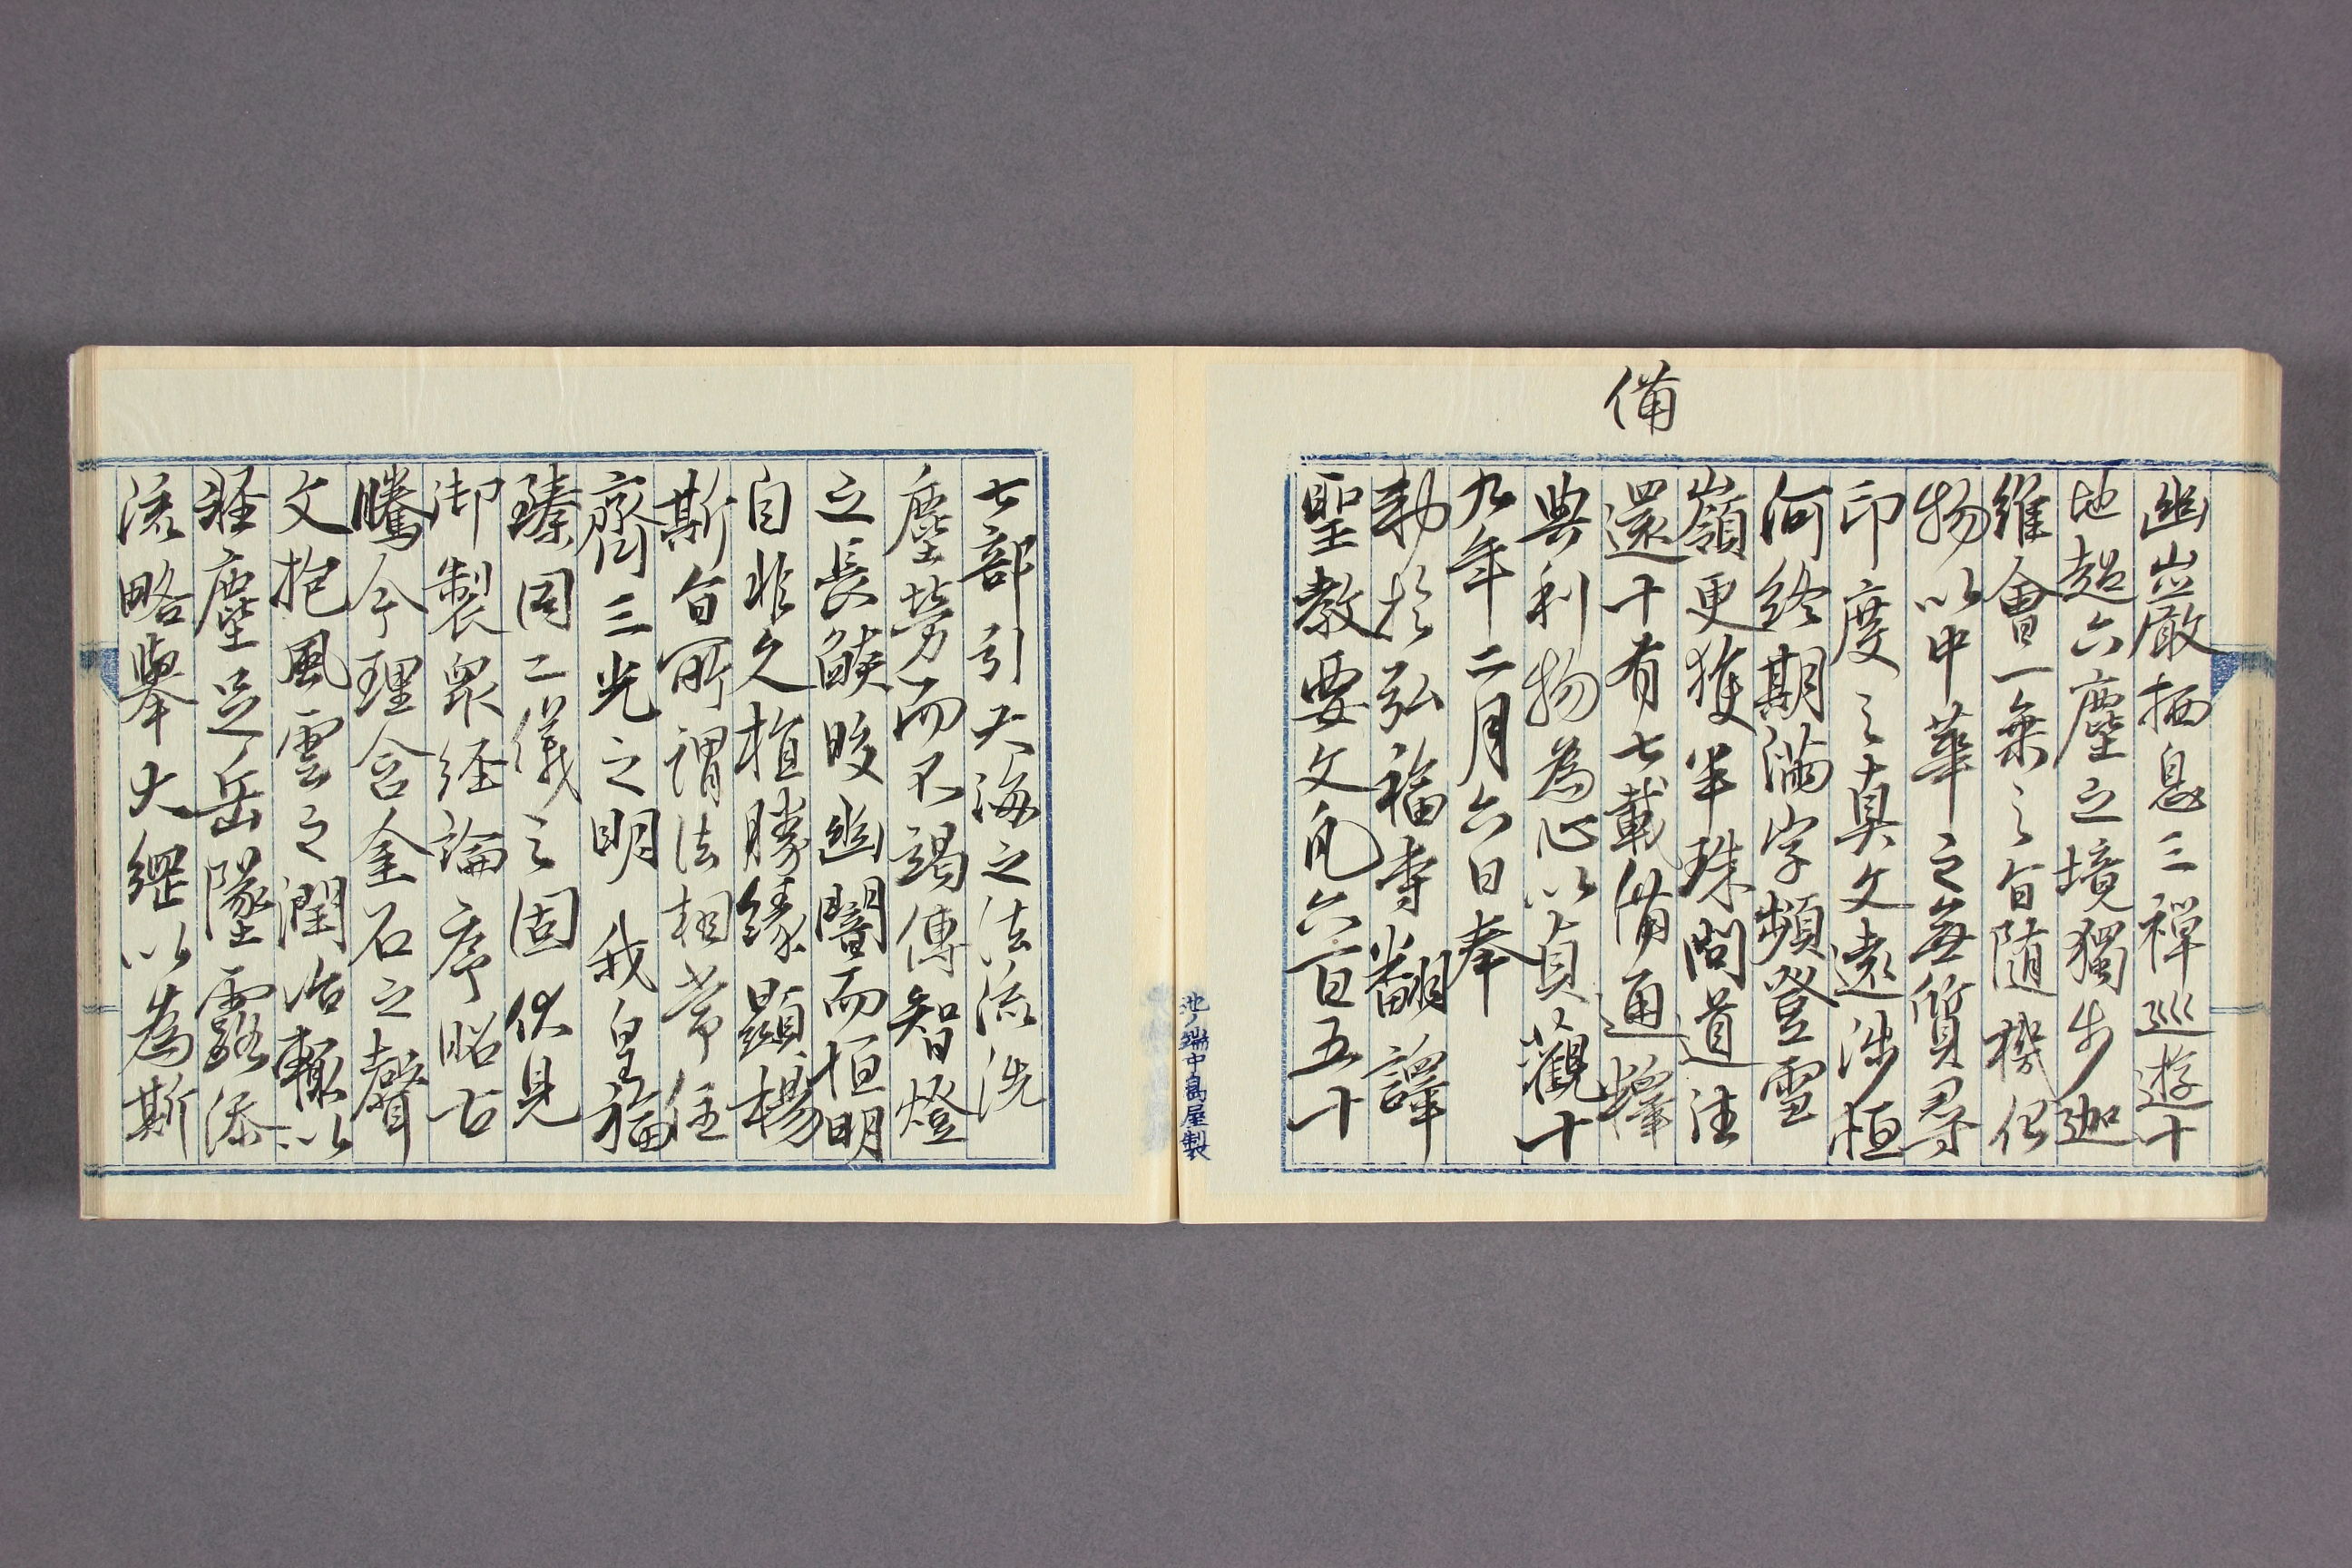 備
幽巌栖息三禅巡遊十
地超六塵之境獨步迦
維會一乗之旨随機化
物以中華之無質尋
印度之真文遠渉恒
河終期満字頻登雪
嶺更獲半珠問道法
還十有七載備通釋
典利物為心以貞觀十
九年二月六日奉
勅於弘福寺翻譯
聖教要文凡六百五十
七部引大海之法流洗
塵勞而不竭傳智燈
之長焔皎幽闇而恒明
自非久植勝縁顯揚
斯旨所謂法相常住
齊三光之明我皇福
臻同二儀之固伏見
御製衆経論序照古
騰今理含金石之聲
文抱風雲之潤治輙以
軽塵足岳墜露添
流略擧大綱以為斯
池ノ端中島屋製